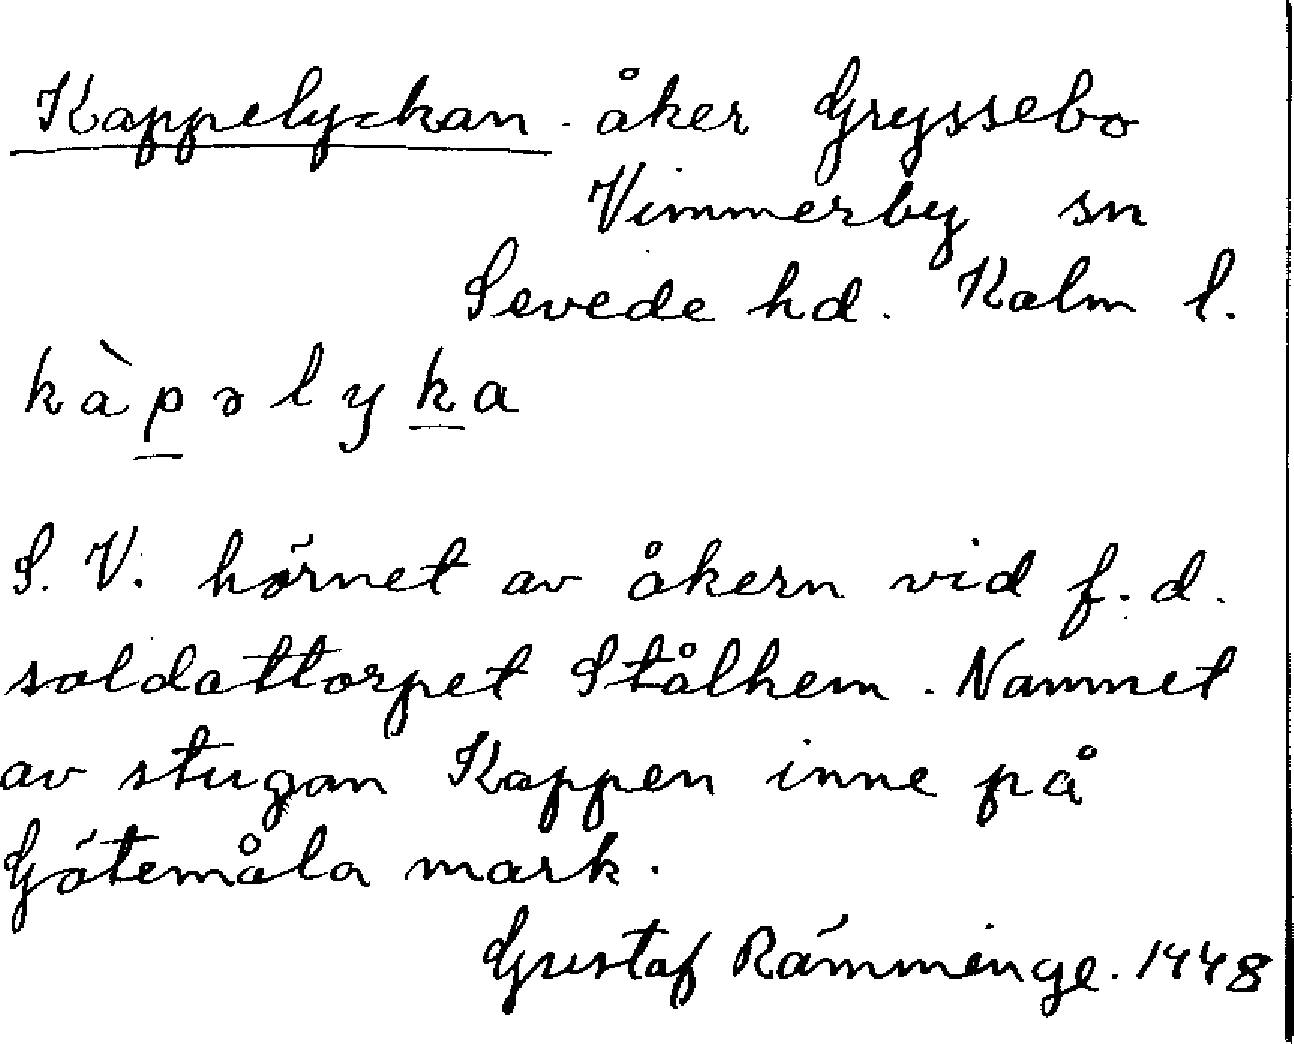 Kappelyckan. åker Gryssebo
Vimmerby sn
Sevede hd. Kalm l.
kàpəlyka
S. V. hörnet av åkern vid f. d.
soldattorpet Stålhem. Namnet
av stugan Kappen inne på
Götemåla mark.
Gustaf Rämminge. 1948